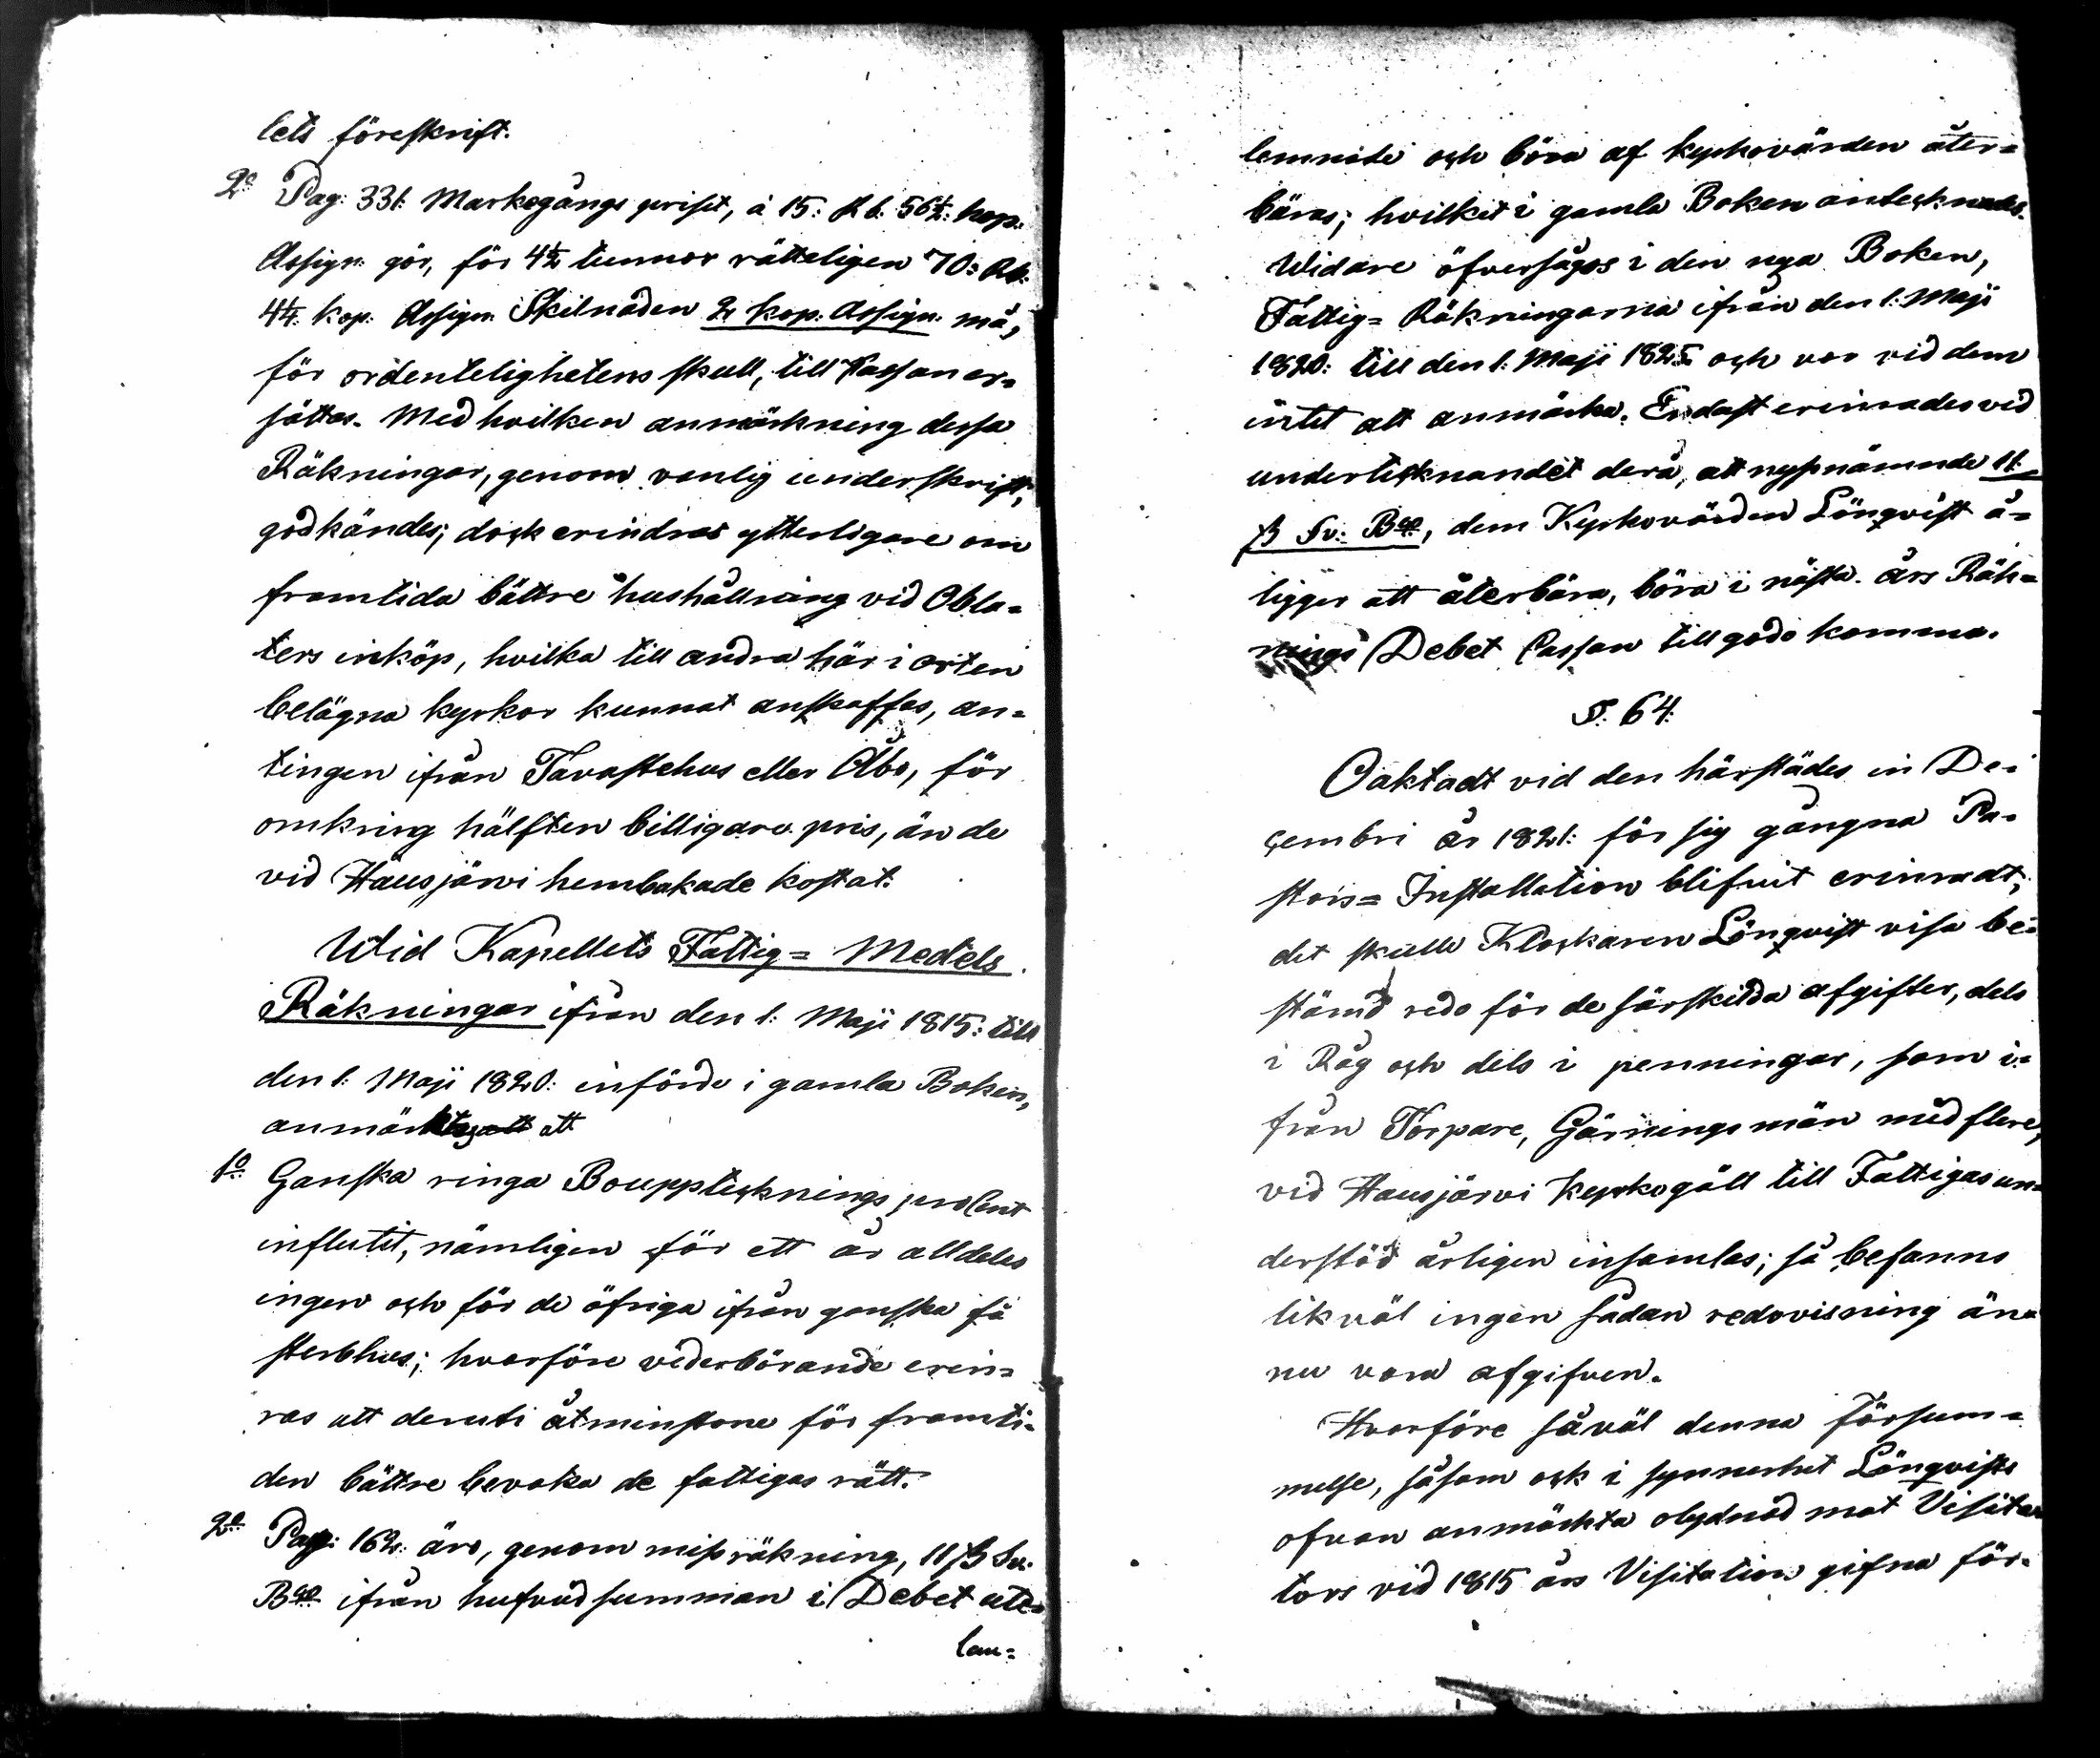 lets föreskrift.
2o Pag: 331: Markegångs priset, à 15: Rb: 56½: kop:
Assign: gör, för 4½ tunnor rätteligen 70: Rb:
4¼: kop: Assign: Skilnaden 2 kop: Assign: må,
för ordentelighetens skull, till Kassan er=
sättas. Med hvilken anmärkning dessa
Räkningar, genom vanlig underskrift,
godkändes; dock erindras ytterligare om
framtida bättre hushållning vid Obla=
ters inköp, hvilka till andra här i orten
belägna kyrkor kunnat anskaffas, an=
tingen ifrån Tavastehus eller Åbo, för
omkring hälften billigare pris, än de
vid Hausjärvi hembakade kostat.
Wid Kapellets Fattig= Medels
Räkningar ifrån den 1: Maji 1815: till
den 1: Maji 1820: införde i gamla Boken,
anmärktes att
1o Ganska ringa Bouppteknings proCent
influtit, nämligen för ett år alldeles
ingen och för de öfriga ifrån ganska få
sterbhus; hvarföre vederbörande erin=
ras att deruti åtminstone för framti=
den bättre bevaka de fattigas rätt.
2o Pag: 162: äro, genom missräkning, 11 ß Sv:
Bco ifrån hufvudsumman i Debet ute=
lem=
lemnade och böra af kyrkovärden åter=
bäras; hvilket i gamla Boken antecknades.
Widare öfversågos i den nya Boken,
Fattig= Räkningarna ifrån den 1: Maji
1820: till den 1: Maji 1825 och var vid dem
intet att anmärka. Endast erinrades vid
undertecknandet derå, att nyssnämnde 11:
ß Sv: Bco, dem Kyrkovärden Lönqvist å=
ligger att återbära, böra i nästa års Räk=
nings Debet Cassan till godo komma.
§. 64:
Oaktadt vid den härstädes in De=
cembri år 1821: för sig gångna Pa=
stors= Installation blifvit erinradt,
det skulle Klockaren Lönqvist visa be=
stämd redo för de särskilda afgifter, dels
i Råg och dels i penningar, som i=
från Torpare, Gärningsmän med flere,
vid Hausjärvi kyrkogäll till Fattigas un=
derstöd årligen insamlas; så befanns
likväl ingen sådan redovisning än=
nu vara afgifven.
Hvarföre såväl denna försum=
melse, såsom ock i synnerhet Lönqvists
ofvan anmärkta olydnad mot Visita=
tors vid 1815 års Visitation gifna för=